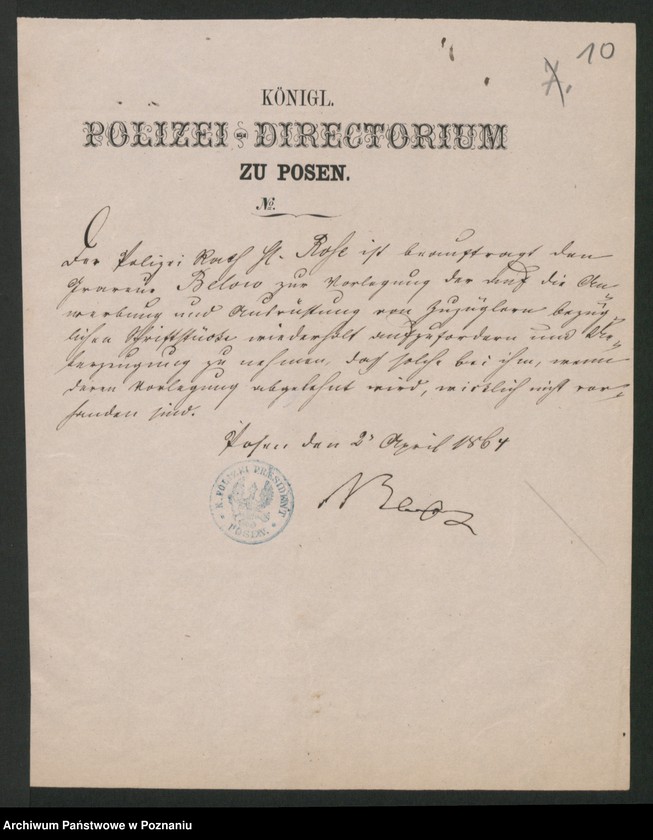 10
7.
KÖNIGL.
POLIZEI-DIRECTORIUM
ZU POSEN.
No.
Der Polizei Rath H. Rose ist beauftragt den
Graveur Below zur Vorlegung der auf die An-
werbung und Ausrüstung von Zuzüglern bezüg-
lichen Schriftstücke wiederholt aufzufordern und Ue-
berzeugung zu nehmen, daß solche bei ihm, wenn
deren Vorlegung abgelehnt wird, wirklich nicht vor-
handen sind.
Posen den 2 April 1864
K. POLIZEI PRÆSIDENT
POSEN.
Archiwum Państwowe w Poznaniu